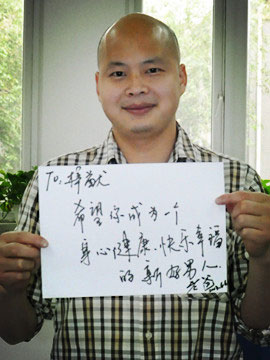 To,
希望你成为一个
身心健康、快乐幸福
的新好男人.
老爸